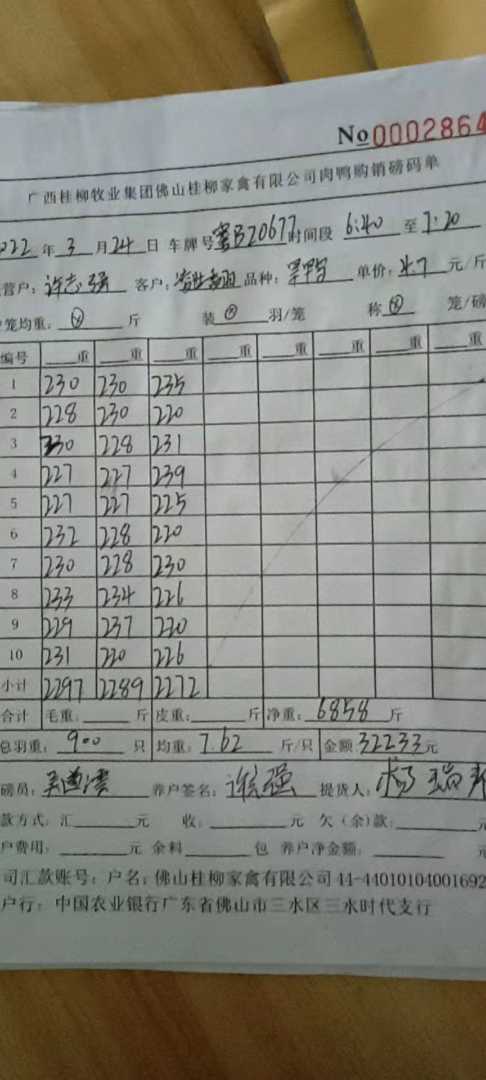 No 0002864
广西桂柳牧业集团佛山桂柳家禽有限公司肉鸭购销磅码单
022 年 3 月 24 日 车牌号 B20677 时间段 6:40 至 7:20
营户: 许志强 客户: 品种: 单价: 4.7 元/斤
笼均重: 斤 装 羽/笼 称 笼/磅
编号 重 重 重 重 重 重 重 重
1 230 230 235
2 228 230 220
3 230 228 231
4 227 227 239
5 227 227 225
6 232 228 220
7 230 228 230
8 233 234 226
9 229 237 220
10 231 220 226
小计 2297 2289 2272
合计 毛重: 斤 皮重: 斤 净重: 6858 斤
总羽重: 900 只 均重: 7.62 斤/只 金额 32233 元
磅员: 养户签名: 许志强 提货人: 杨瑞
款方式: 汇 元 收: 元 欠(余)款:
户费用: 元 余料 包 养户净金额: 元
司汇款账号: 户名: 佛山桂柳家禽有限公司 44-44010104001692
户行: 中国农业银行广东省佛山市三水区三水时代支行